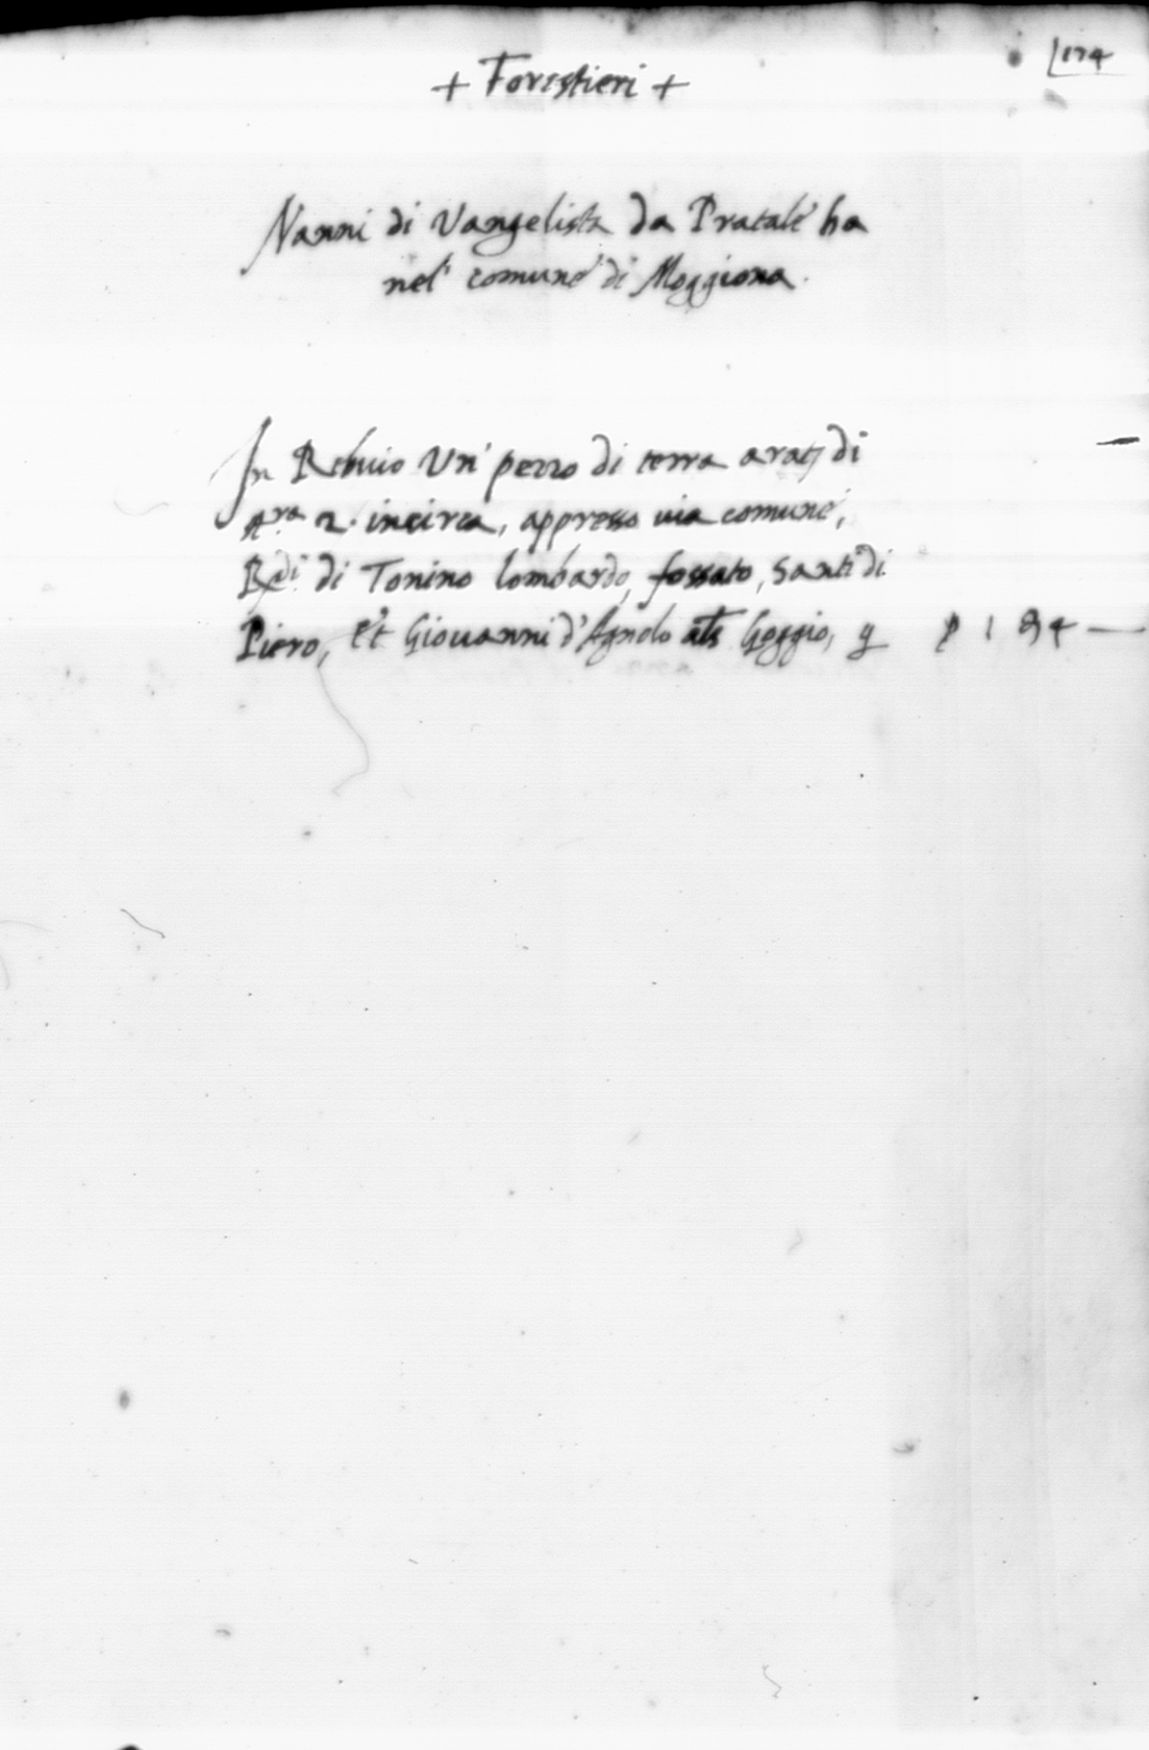 174
+ Forestieri +
Nanni di Vangelista da Pratale ha
nel comune di Moggiona.
In Rebuio un pezzo di terra arat. di
st.ra 2. incirca, appresso via comune,
Redi di Tonino lombardo, fossato, Santi di
Piero, et Giovanni d'Agnolo als Goggio, 1 84